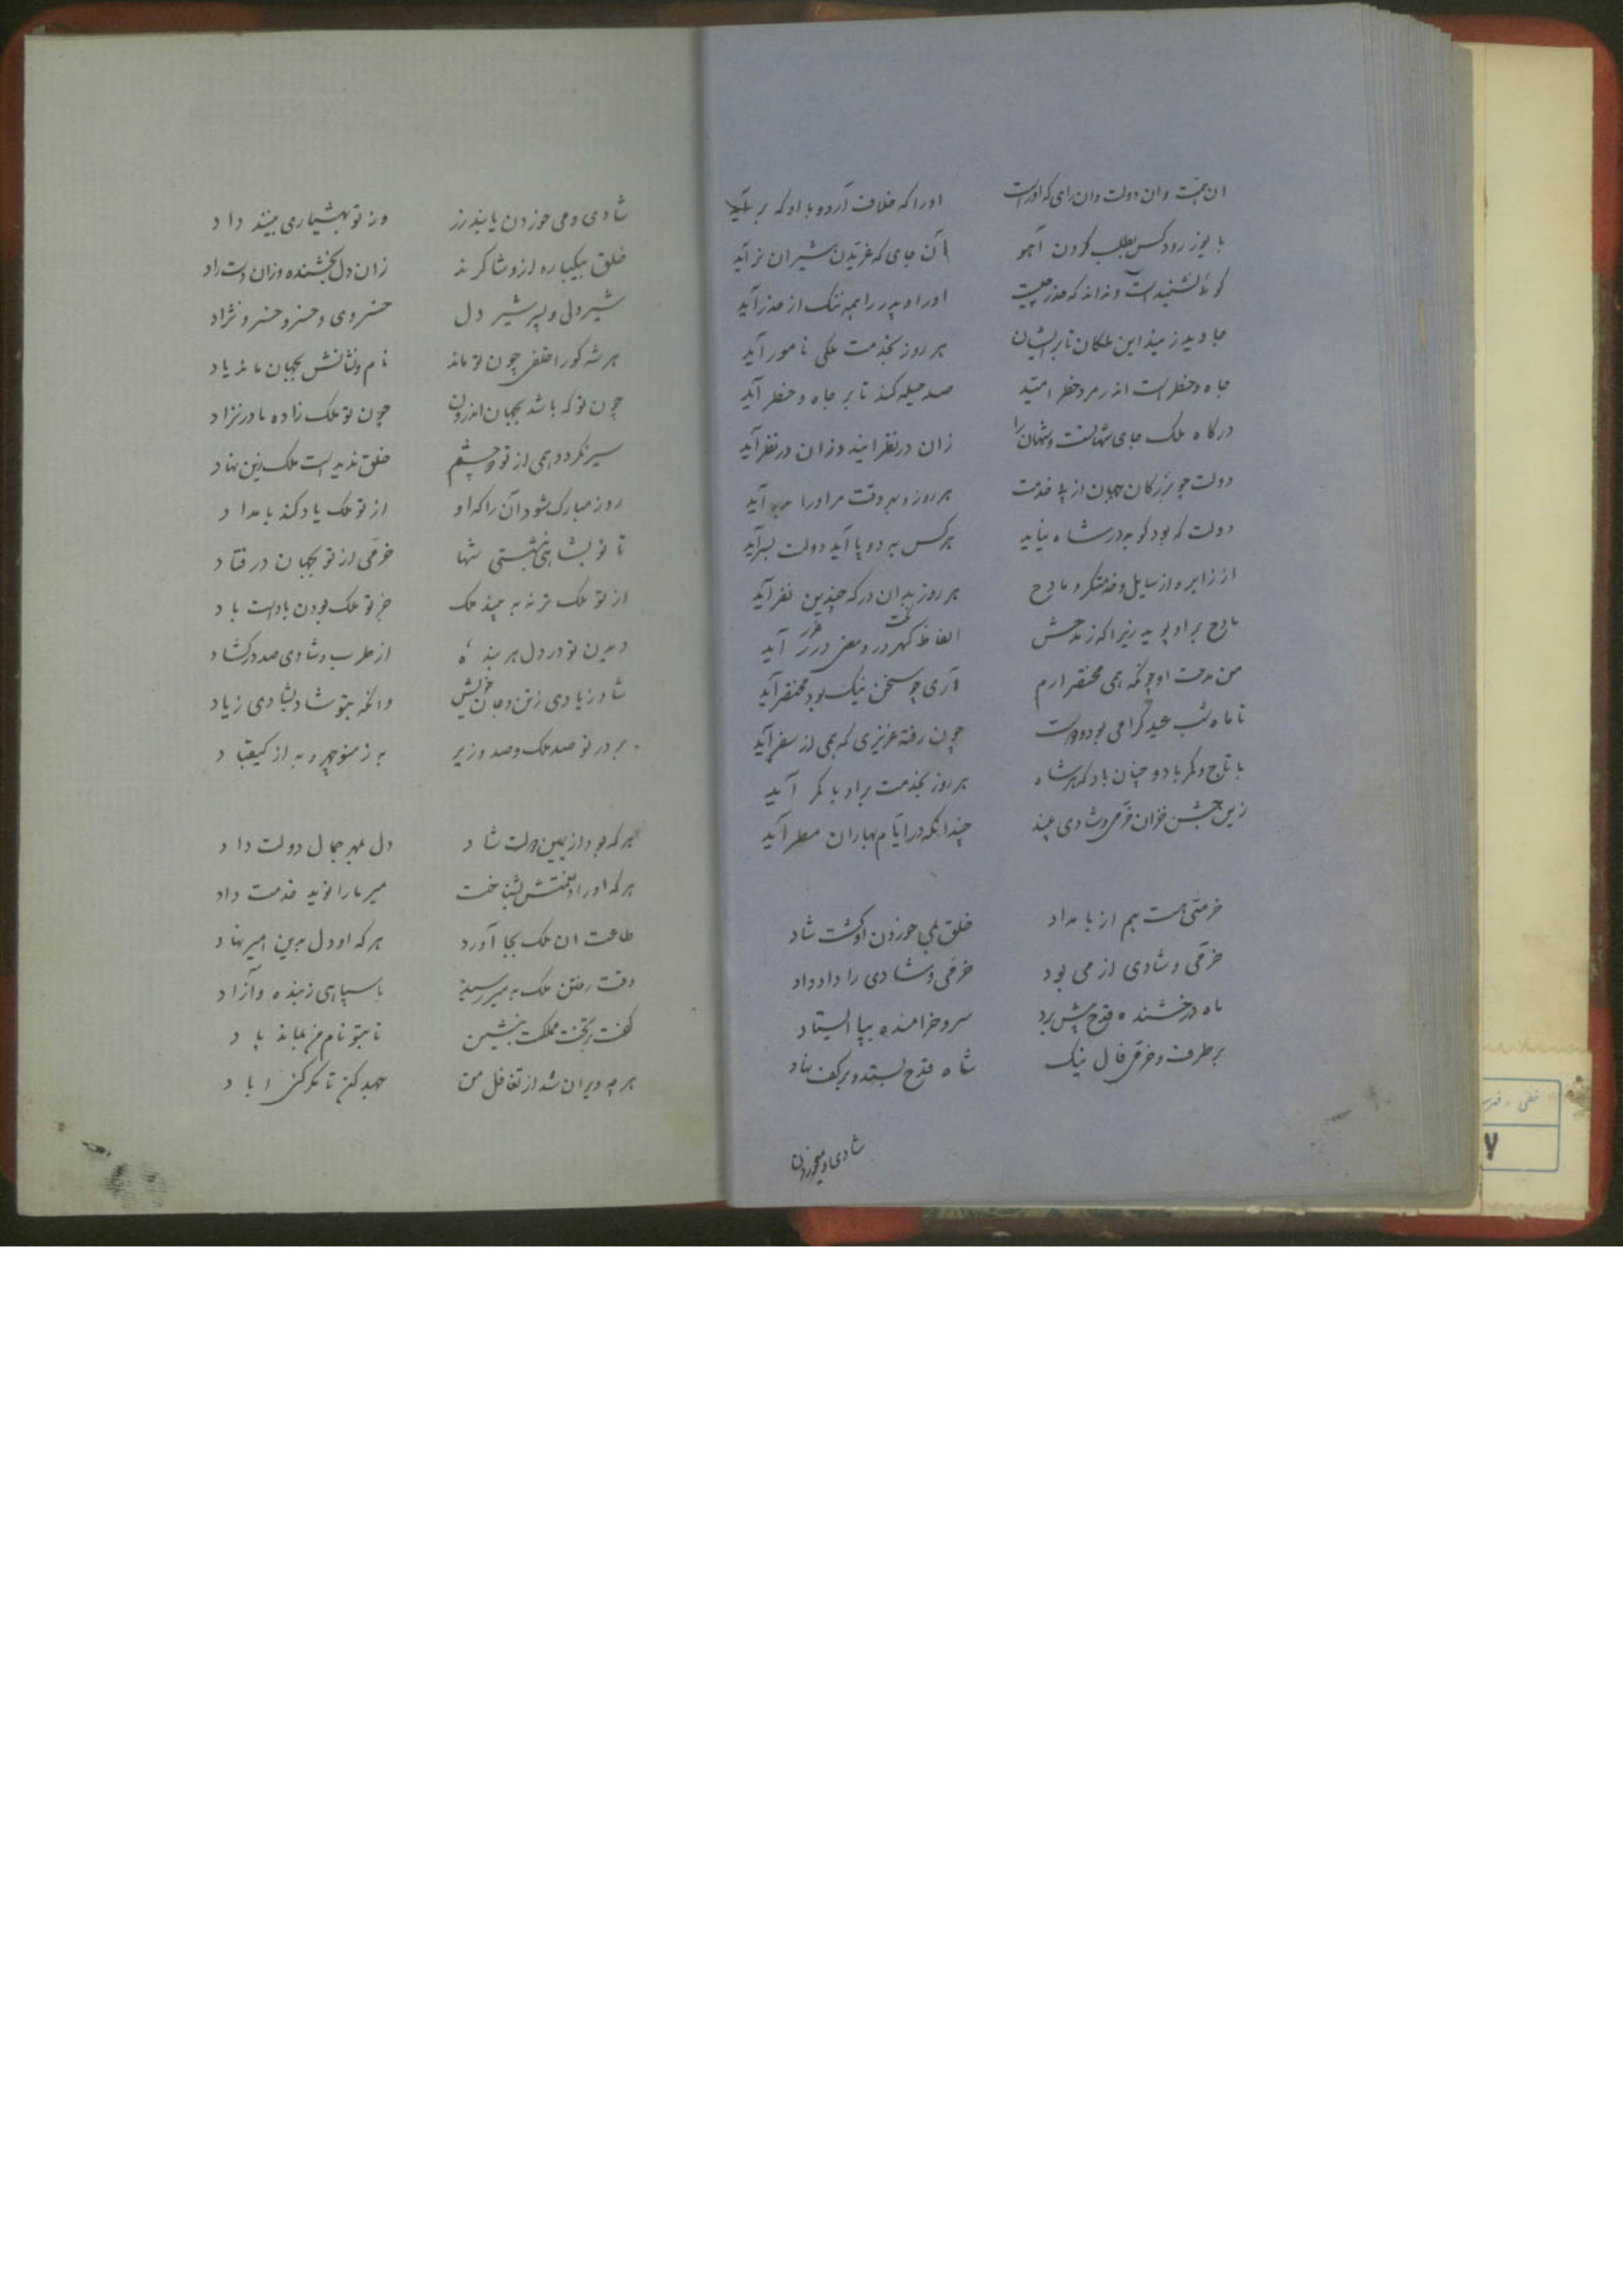 ان همت وان دولت وان رای که اوراست اورا که خلاف آرد و با او که بر آید
با یوز رود کس بطلب کردن آهو آن جای که غریدن شیران نر آید
کو نشنیدست و نداند که حذر چیست اورا و پدر را همه ننگ از حذر آید
جاوید زمیذ این ملکان تا بر ایشان هر روز بخدمت ملکی نامور آید
جاه و خطرست اندر مرد خطر امید صد حیله کند تا بر جاه و خطر آید
درکاه ملک جای شهانست و شهان را زان در نظر ایند وزان در نظر آید
دولت چو بزرکان جهان از پی خدمت هر روز و بهر وقت مر اورا آید
دولت که بود کو بدر شاه نیاید هر کس که دو پا آید دولت بسر آید
از زایر و از سایل و خدمتکر و مادح هر روز بدان درکه چندین نفر آید
مادح بر او پوید زیرا که زمدحش الفاظ کهر در و معنی درر آید
من مدحت او چونکه همی مختصر ارم آری چو سخن نیک بود مختصر آید
تا ماه شب عید کرامی بود و دوست چون رفته عزیزی که همی از سفر آید
با تاج و کمر باد و چنان باد که هر شاه هر روز بخدمت بر او با کمر آید
زین جشن خزان خرمی و شادی بیند چندانکه در ایام بهاران مطر آید
خرمتی هست هم از بامداد خلق بمی خوردن او کشت شاد
خرمی و شادی از می بود خرمی و شادی را داد داد
ماه درخشنده قدح پیش برد سرو خرامنده بپا ایستاد
بر طرف و خرقی فال نیک شاه قدح بستد و بر کف نهاد
شادی و میخوردن
شادی و می خوردن یابند رز وز تو بهشیاری بینند داد
خلق بیکباره ازو شاکرند زان دل بخشنده وزان دست راد
شیر دلی و پسر شیر دل خسروی و خسرو خسرو نژاد
هر شه کورا خلفی چون تو ماند نام و نشانش بجهان ماند یاد
چون تو که باشد بجهان اندرون چون تو ملک زاده مادر نزاد
سیر نکردد همی از تو دو چشم خلق ندیدست ملک زین نهاد
روز مبارک شود آن را که او از تو ملک یاد کند بامداد
تا تو بشاهی بنشستی شها خرمی از تو بجهان در فتاد
از تو ملک تر نه بیند ملک جز تو ملک بودن بادست باد
دیدن تو در دل هر بنده از طرب و شادی صد در کشاد
شاد زیادی زتن و جان خویش وانکه بتو شاد بشادی زیاد
بر در تو صد ملک و صد وزیر به ز منوچهر و به از کیقباد
هر که بود از یمین دولت شاد دل بمهر جمال دولت داد
هر که اورا بشناخت میر مارا نوید خدمت داد
طاعت ان ملک بجا آورد هر که او دل بدین امیر نهاد
وقت رفتن ملک بمیر سپرد با سپاهی ز بنده و آزاد
کفت بر تخت مملکت بنشین تا بتو نام من بماند یاد
هر چه ویران شد از تغافل من جهد کن تا مکر کنی اباد